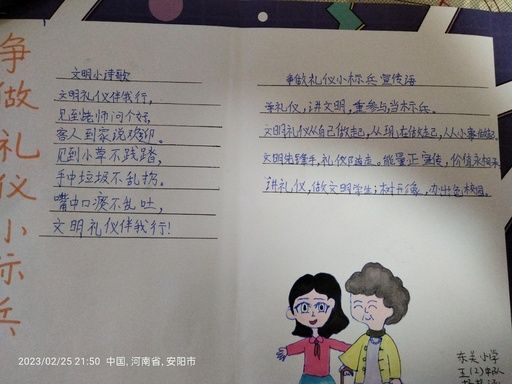 争做礼仪小标兵
文明小诗歌
文明礼仪伴我行,
见到老师问个好,
客人到家说欢迎。
见到小草不践踏,
手中垃圾不乱扔。
嘴中口痰不乱吐,
文明礼仪伴我行!
争做礼仪小标兵宣传语
学礼仪,讲文明,重参与,当标兵。
文明礼仪从自己做起,从现在做起,从小事做起。
文明先锋,礼仪,能量正宣传,价值永相承
讲礼仪,做文明学生;树形象,办出色校园。
东关小学
五(2)中队
2023/02/25 21:50 中国,河南省,安阳市